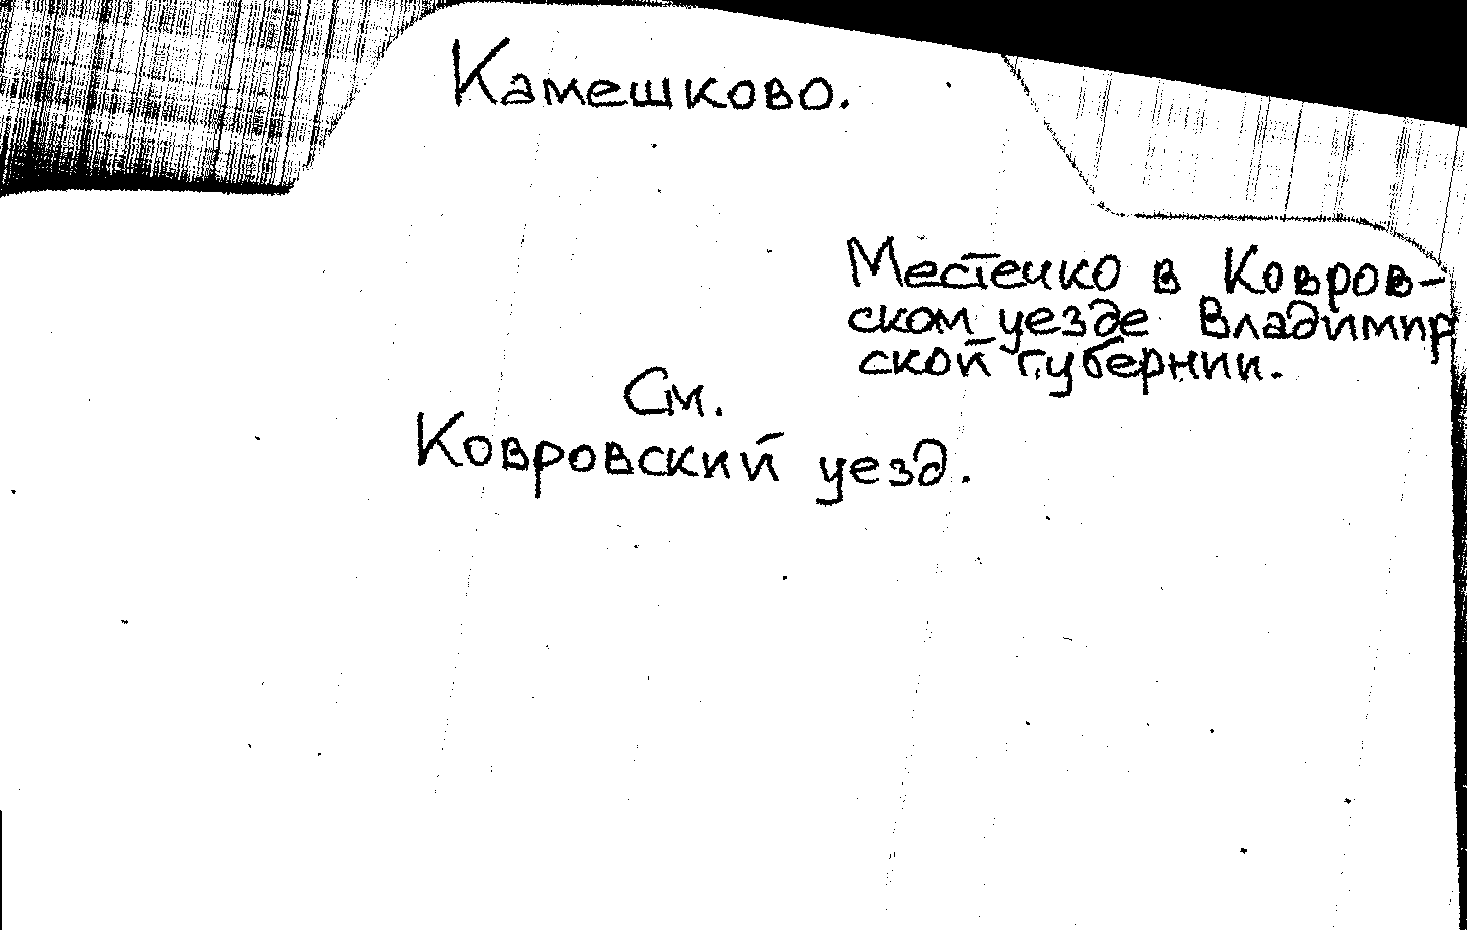 Камешково.
Местечко в Ковров-
ском уезде Владимир
ской губернии.
См.
Ковровский уезд.